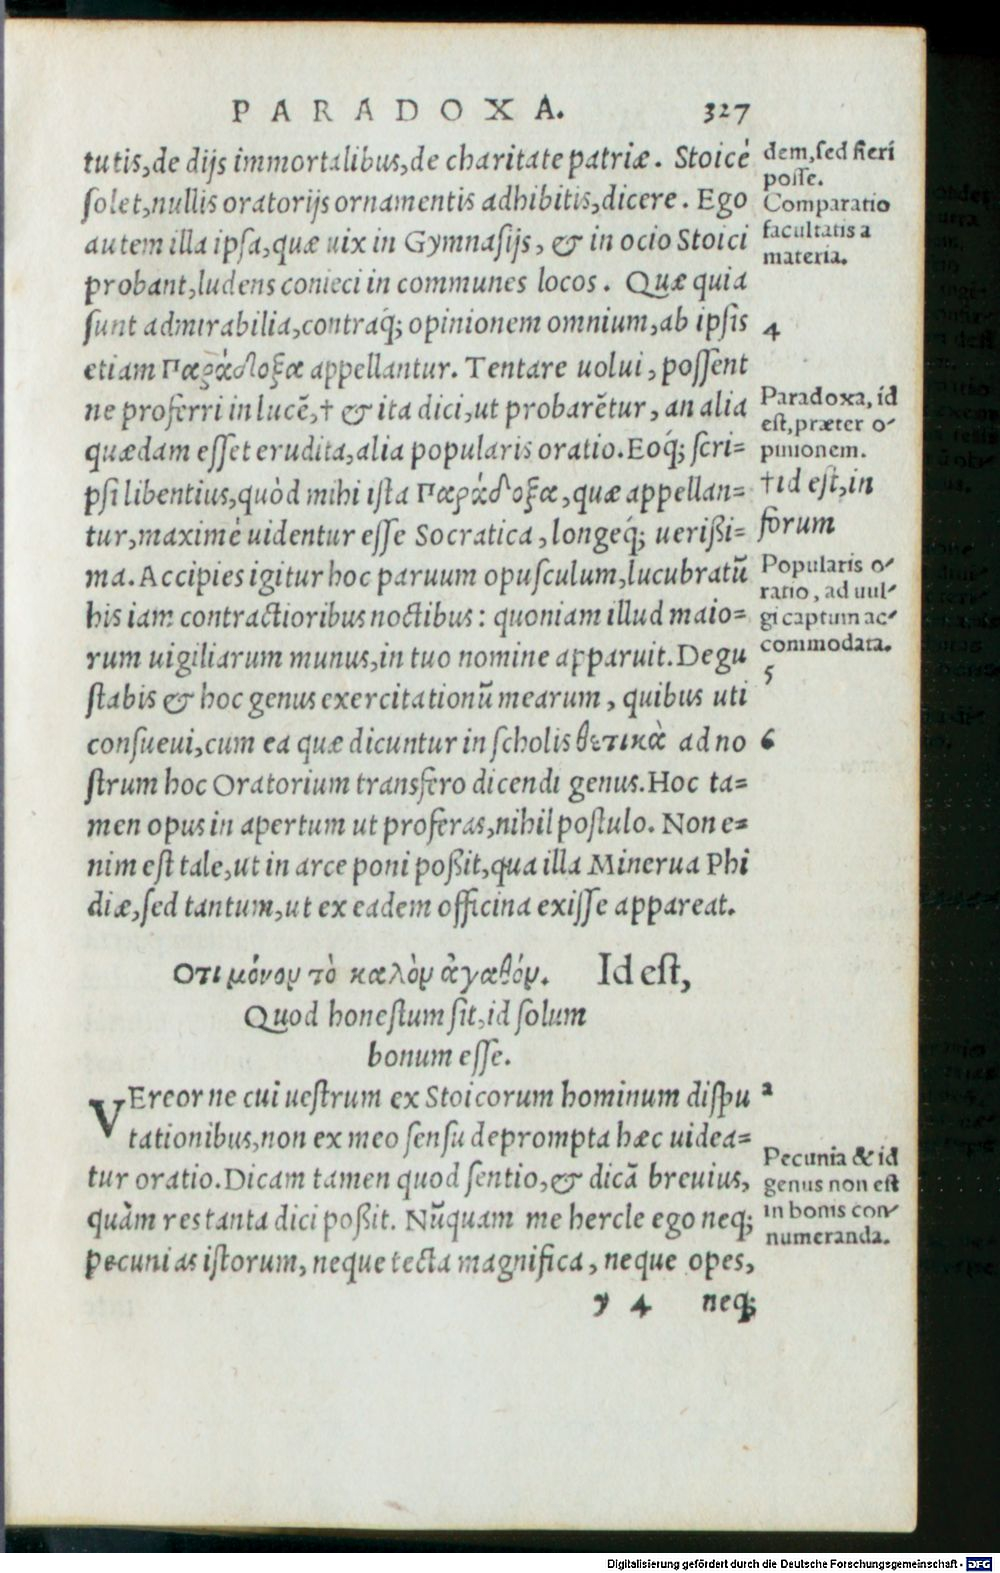 PARADOXA. 327
tutis,de dijs immortalibus,de charitate patriæ. Stoicè
solet,nullis oratorijs ornamentis adhibitis,dicere. Ego
autem illa ipsa,quæ uix in Gymnasijs, & in ocio Stoici
probant,ludens conieci in communes locos. Quæ quia
sunt admirabilia,contraq́; opinionem omnium,ab ipsis
etiam Παράδοξα appellantur. Tentare uolui, possent
ne proferri in lucē,† & ita dici,ut probarētur, an alia
quædam esset erudita,alia popularis oratio.Eoq́; scri=
psi libentius,quòd mihi ista Παράδοξα,quæ appellan=
tur,maximè uidentur esse Socratica,longeq́; uerißi=
ma.Accipies igitur hoc paruum opusculum,lucubratū
his iam contractioribus noctibus: quoniam illud maio=
rum uigiliarum munus,in tuo nomine apparuit.Degu
stabis & hoc genus exercitationū mearum, quibus uti
consueui,cum ea quæ dicuntur in scholis θετικὰ ad no
strum hoc Oratorium transfero dicendi genus.Hoc ta=
men opus in apertum ut proferas,nihil postulo. Non e=
nim est tale,ut in arce poni poßit,qua illa Minerua Phi
diæ,sed tantum,ut ex eadem officina exisse appareat.
Οτι μόνον τὸ καλὸν ἀγαθόν. Id est,
Quod honestum sit,id solum
bonum esse.
VEreor ne cui uestrum ex Stoicorum hominum dispu
tationibus,non ex meo sensu deprompta hæc uidea=
tur oratio.Dicam tamen quod sentio,& dicā breuius,
quàm res tanta dici poßit. Nūquam me hercle ego neq;
pecunias istorum, neque tecta magnifica, neque opes,
y 4 neq;
dem,sed fieri
posse.
Comparatio
facultatis a
materia.
4
Paradoxa, id
est,præter o-
pinionem.
†id est,in
forum
Popularis o-
ratio, ad uul-
gi captum ac-
commodata.
5
6
2
Pecunia & id
genus non est
in bonis con-
numeranda.
Digitalisierung gefördert durch die Deutsche Forschungsgemeinschaft - DFG